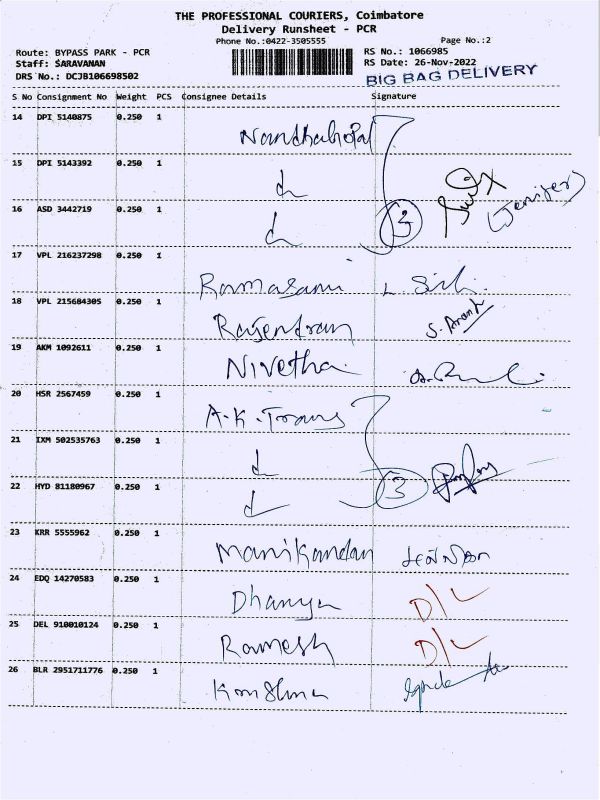 THE PROFESSIONAL COURIERS, Coimbatore
Delivery Runsheet - PCR
Phone No.:0422-3505555 Page No.:2
Route: BYPASS PARK - PCR RS No.: 1066985
Staff: SARAVANAN RS Date: 26-Nov-2022
DRS No.: DCJB106698502 BIG BAG DELIVERY
S No Consignment No Weight PCS Consignee Details Signature
14 DPI 5140875 0.250 1
15 DPI 5143392 0.250 1
16 ASD 3442719 0.250 1 3 (Jenifer)
17 VPL 216237298 0.250 1 Ramasami
18 VPL 215684305 0.250 1 Rajendran S. Anank
19 AKM 1092611 0.250 1 Nivetha
20 HSR 2567459 0.250 1 A.K. Trans
21 IXM 502535763 0.250 1
22 HYD 81180967 0.250 1 3
23 KRR 5555962 0.250 1 Manikandan
24 EDQ 14270583 0.250 1 Dhanya D/L
25 DEL 910010124 0.250 1 Ramesh D/L
26 BLR 2951711776 0.250 1